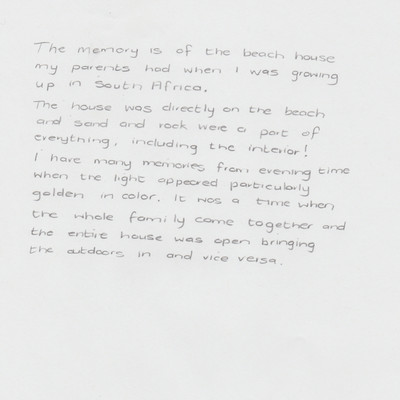 The memory is of the beach house
my parents had when I was growing
up in South Africa.
The house was directly on the beach
and sand and rock were a part of
everything, including the interior!
I have many memories from evening time
when the light appeared particularly
golden in color. It was a time when
the whole family came together and
the entire house was open bringing
the outdoors in and vice versa.